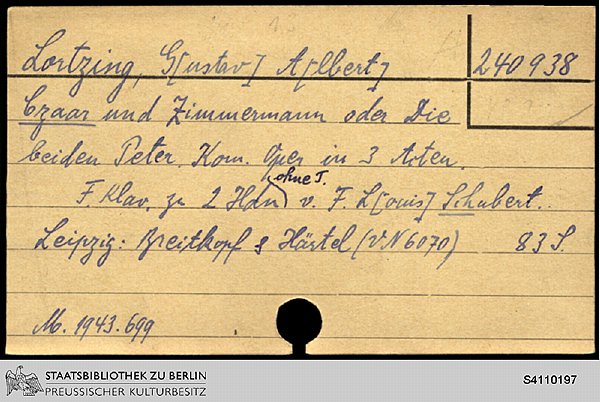 Lortzing, G[ustav] A[lbert]
240938
Czaar und Zimmermann oder Die
beiden Peter. Kom. Oper in 3 Akten.
ohne T.
F. Klav. zu 2 Hdn v. F. L[ouis] Schubert.
Leipzig: Breitkopf & Härtel (VN 6070) 83 S.
M. 1943.699
STAATSBIBLIOTHEK ZU BERLIN
PREUSSISCHER KULTURBESITZ
S4110197